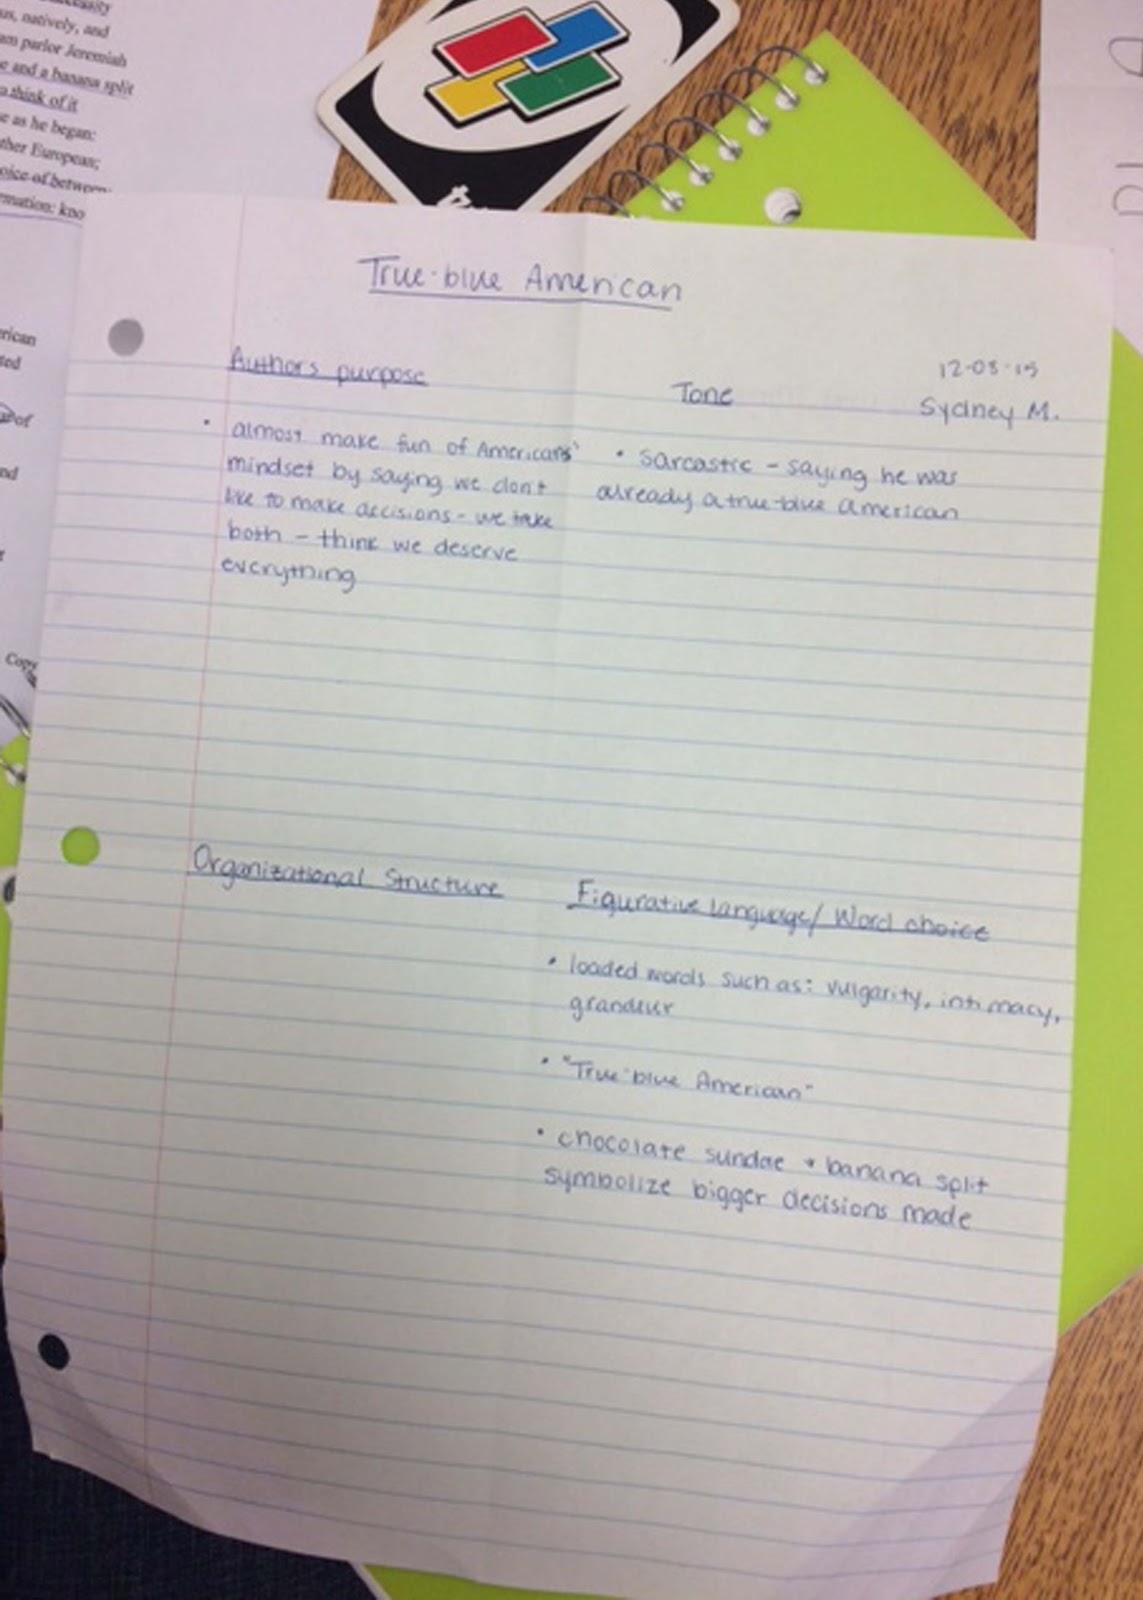 us, natively, and
am parlor Jeremiah
e and a banana split
think of it
e as he began:
ther European;
oice of between
rmation: kno
rican
ted
of
nd
Copy
True-blue American
12-03-15
Sydney M.
Authors purpose
• almost make fun of Americans'
mindset by saying we don't
like to make decisions - we take
both - think we deserve
everything
Tone
• sarcastic - saying he was
already a true-blue american
Organizational Structure
Figurative language/ Word choice
• loaded words such as: vulgarity, intimacy,
grandeur
• "True-blue American"
• chocolate sundae + banana split
symbolize bigger decisions made